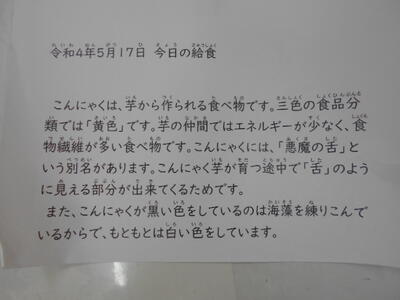 令和4年5月17日 今日の給食
こんにゃくは、芋から作られる食べ物です。三色の食品分
類では「黄色」です。芋の仲間ではエネルギーが少なく、食
物繊維が多い食べ物です。こんにゃくには、「悪魔の舌」と
いう別名があります。こんにゃく芋が育つ途中で「舌」のよう
に見える部分が出来てくるためです。
また、こんにゃくが黒い色をしているのは海藻を練りこんで
いるからで、もともとは白い色をしています。